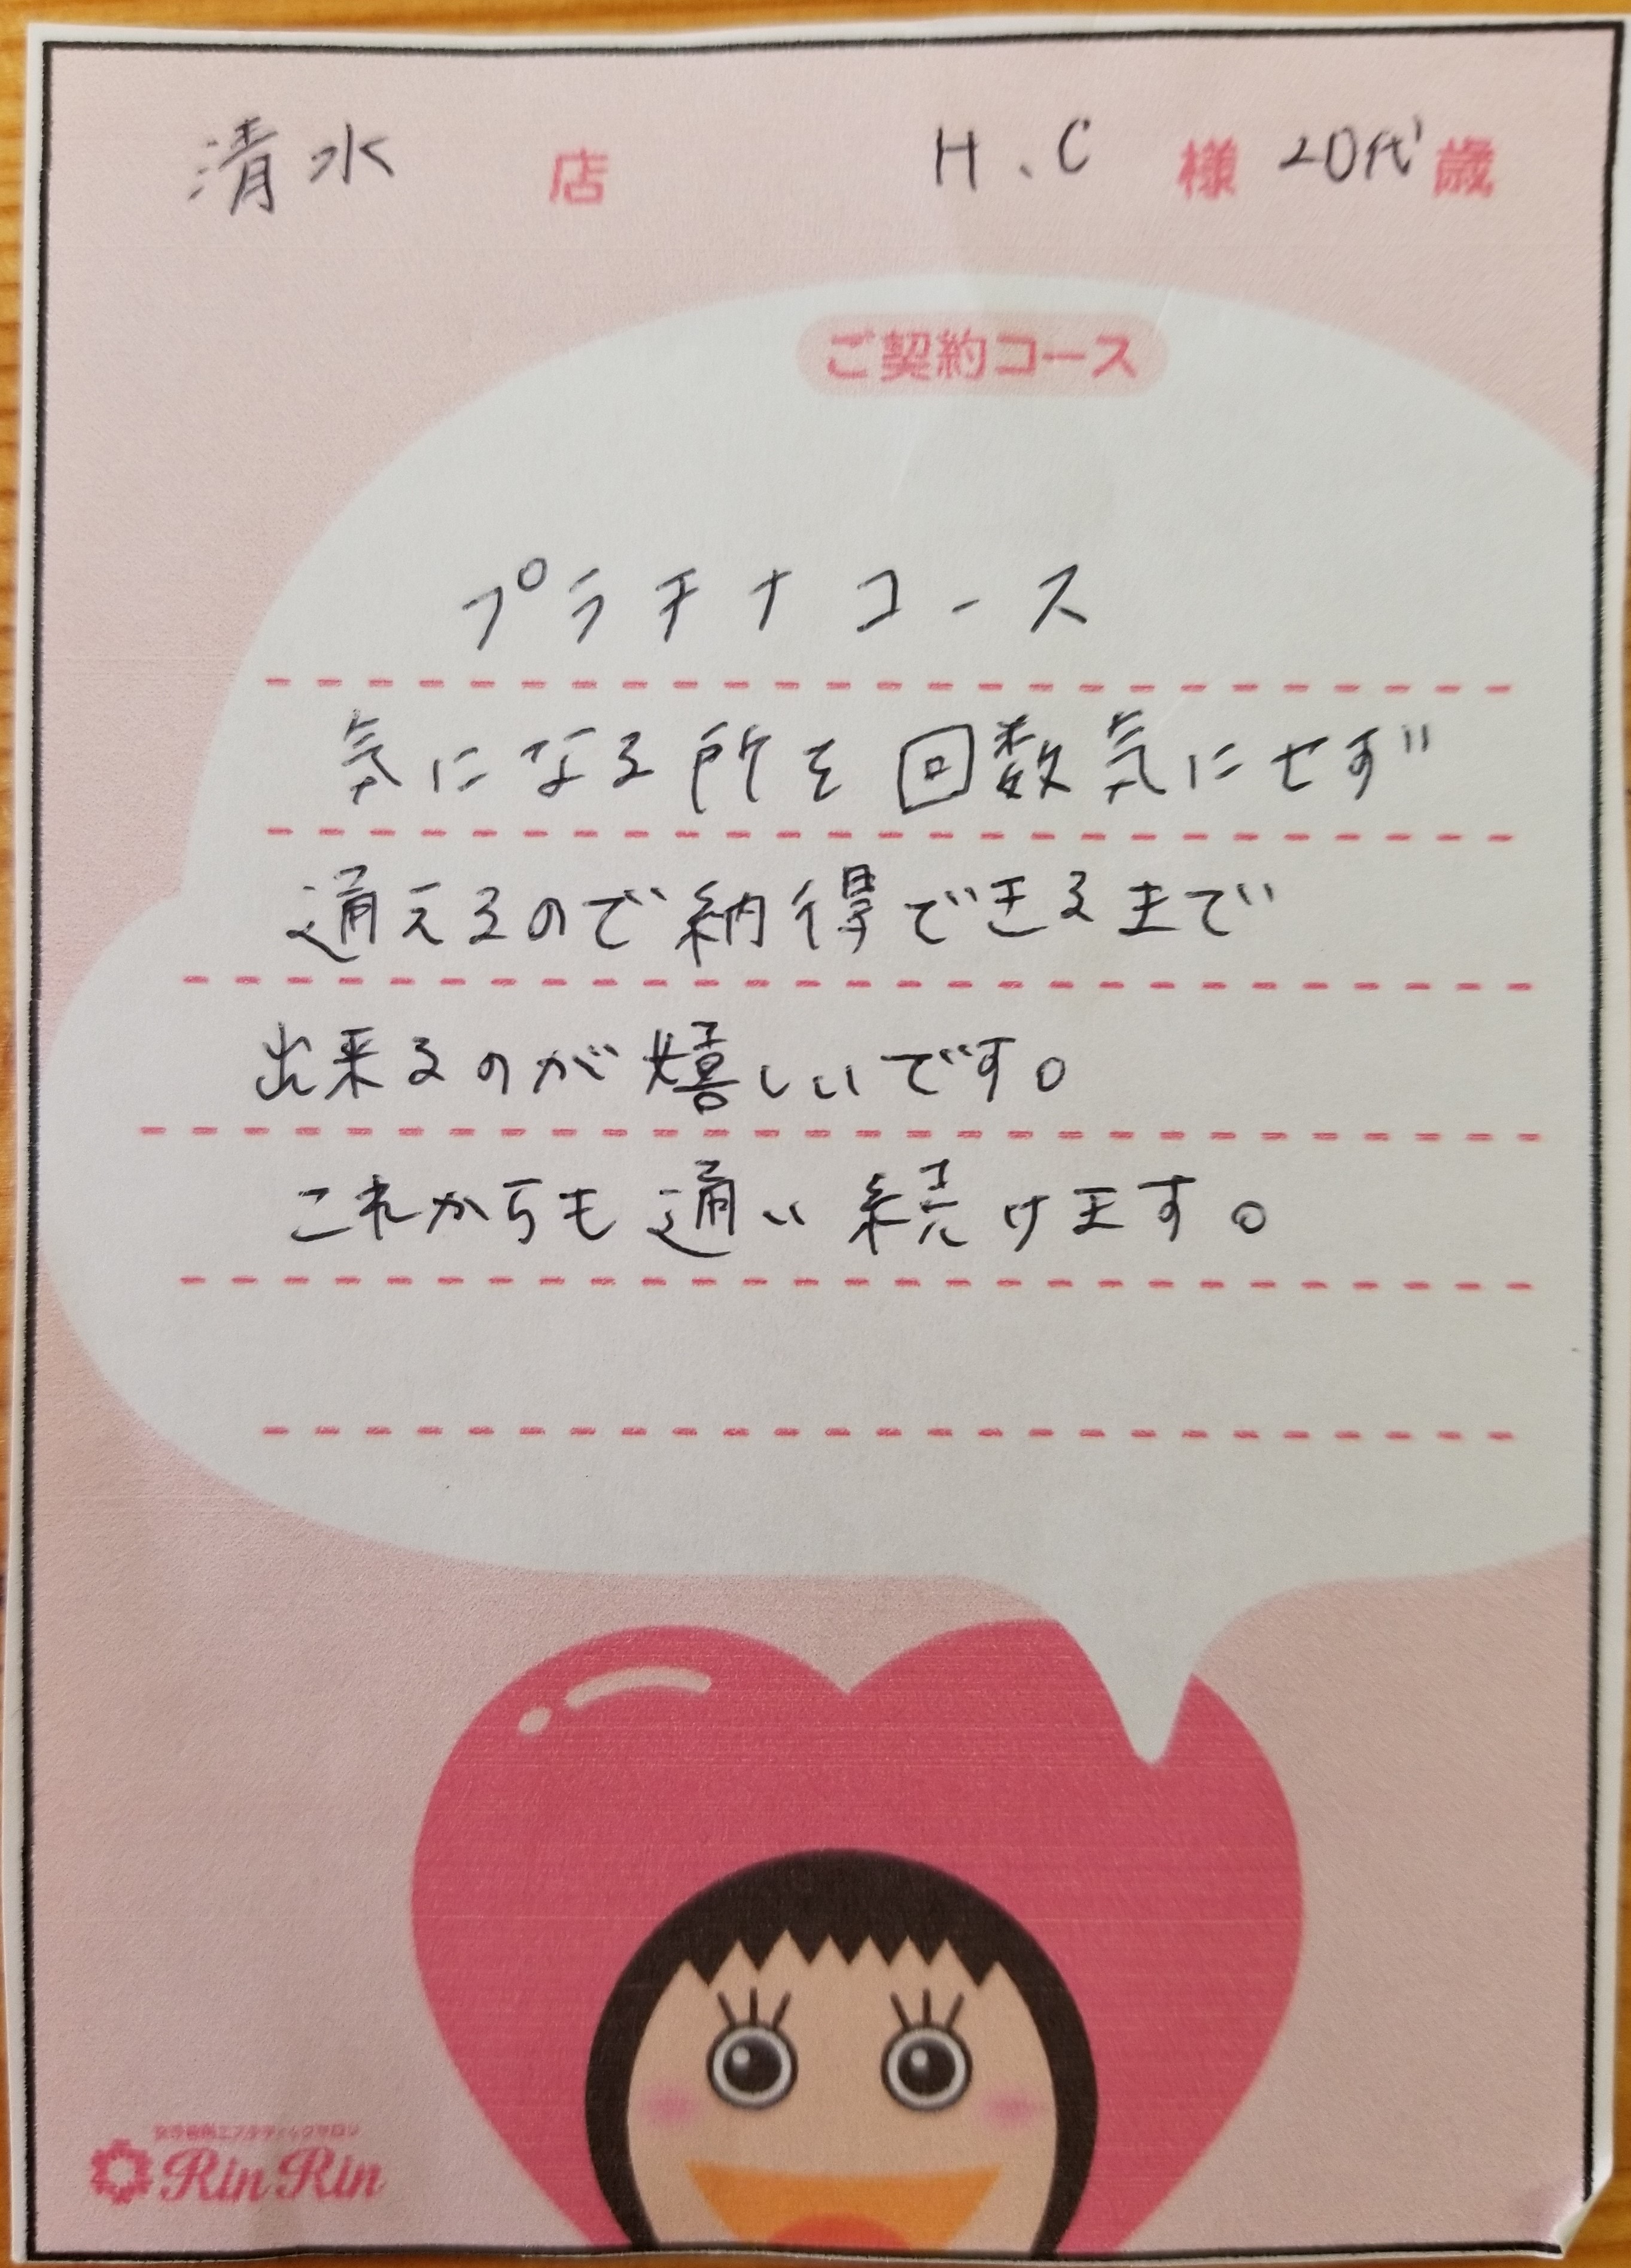 清水 店 H.C 様 20代 歳
ご契約コース
プラチナコース
気になる所を回数気にせず
通えるので納得できるまで
出来るのが嬉しいです。
これからも通い続けます。
RinRin